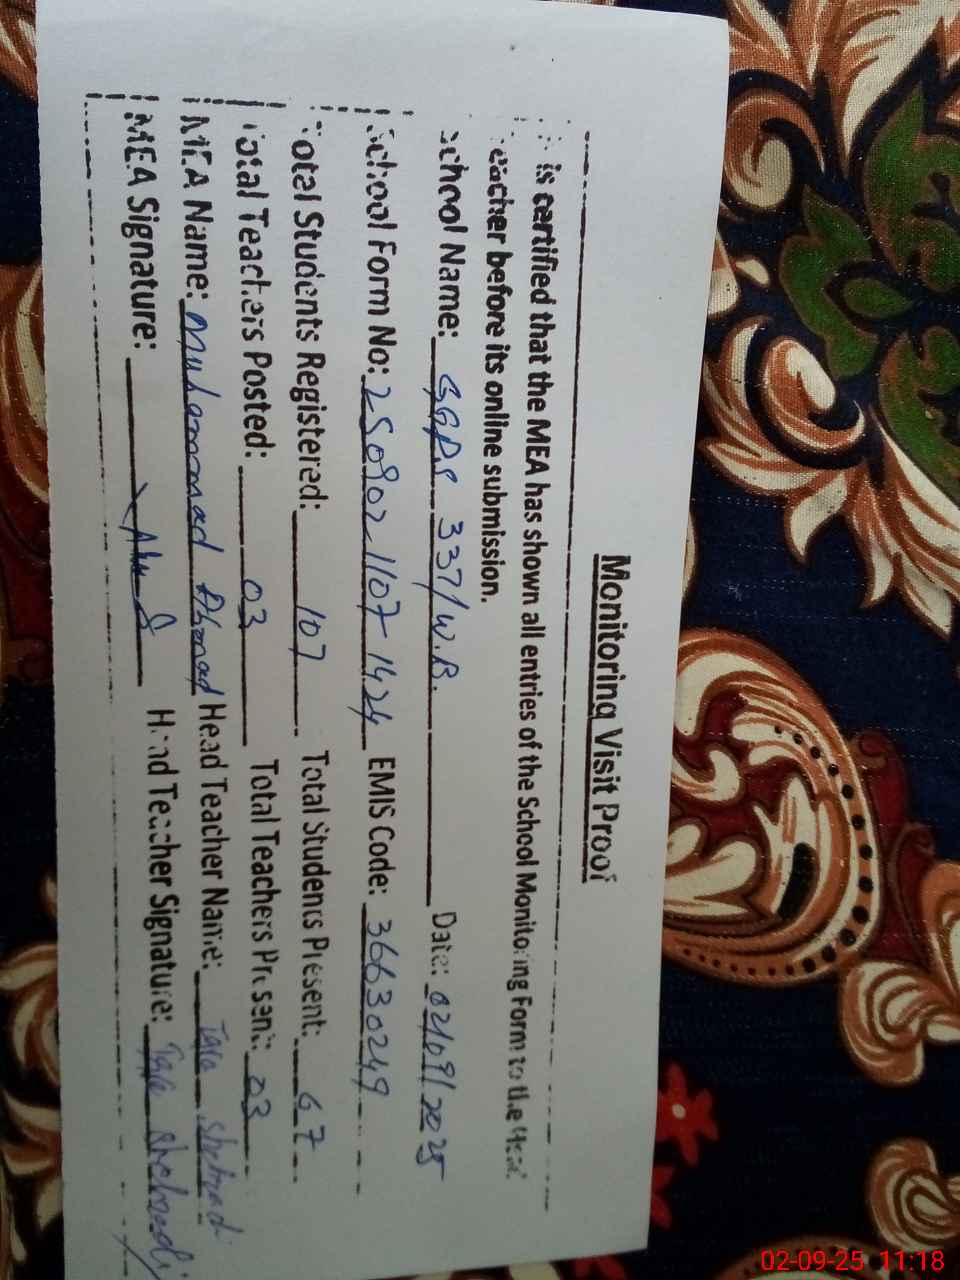 Monitoring Visit Proof
is certified that the MEA has shown all entries of the School Monitoring Form to the Head
Teacher before its online submission.
School Name: GGPS 337/W.B. Date: 02/09/2025
School Form No: 250902-1107-1424 EMIS Code: 36630249
Total Students Registered: 107 Total Students Present: 67
Total Teachers Posted: 03 Total Teachers Present: 03
MEA Name: Muhammad Ahmad Head Teacher Name: Tara
MEA Signature: Head Teacher Signature: Tara
02-09-25 11:18